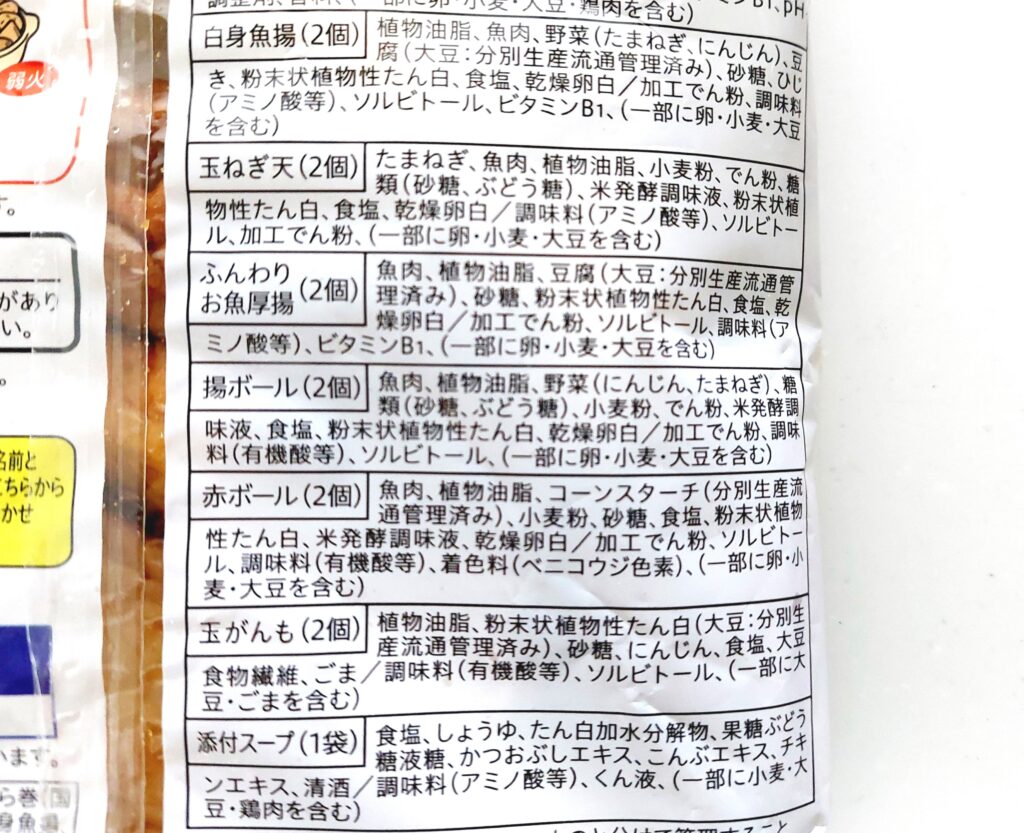 調整剤、香料、(一部に卵・小麦・大豆・鶏肉を含む)
白身魚揚(2個)
植物油脂、魚肉、野菜(たまねぎ、にんじん)、豆
腐(大豆:分別生産流通管理済み)、砂糖、ひじ
き、粉末状植物性たん白、食塩、乾燥卵白/加工でん粉、調味料
(アミノ酸等)、ソルビトール、ビタミンB1、(一部に卵・小麦・大豆
を含む)
玉ねぎ天(2個)
たまねぎ、魚肉、植物油脂、小麦粉、でん粉、糖
類(砂糖、ぶどう糖)、米発酵調味液、粉末状植
物性たん白、食塩、乾燥卵白/調味料(アミノ酸等)、ソルビトー
ル、加工でん粉、(一部に卵・小麦・大豆を含む)
ふんわり
お魚厚揚(2個)
魚肉、植物油脂、豆腐(大豆:分別生産流通管
理済み)、砂糖、粉末状植物性たん白、食塩、乾
燥卵白/加工でん粉、ソルビトール、調味料(ア
ミノ酸等)、ビタミンB1、(一部に卵・小麦・大豆を含む)
揚ボール(2個)
魚肉、植物油脂、野菜(にんじん、たまねぎ)、糖
類(砂糖、ぶどう糖)、小麦粉、でん粉、米発酵調
味液、食塩、粉末状植物性たん白、乾燥卵白/加工でん粉、調味
料(有機酸等)、ソルビトール、(一部に卵・小麦・大豆を含む)
赤ボール(2個)
魚肉、植物油脂、コーンスターチ(分別生産流
通管理済み)、小麦粉、砂糖、食塩、粉末状植物
性たん白、米発酵調味液、乾燥卵白/加工でん粉、ソルビトー
ル、調味料(有機酸等)、着色料(ベニコウジ色素)、(一部に卵・小
麦・大豆を含む)
玉がんも(2個)
植物油脂、粉末状植物性たん白(大豆:分別生
産流通管理済み)、砂糖、にんじん、食塩、大豆
食物繊維、ごま/調味料(有機酸等)、ソルビトール、(一部に大
豆・ごまを含む)
添付スープ(1袋)
食塩、しょうゆ、たん白加水分解物、果糖ぶどう
糖液糖、かつおぶしエキス、こんぶエキス、チキ
ンエキス、清酒/調味料(アミノ酸等)、くん液、(一部に小麦・大
豆・鶏肉を含む)
弱火
す。
があり
い。
名前と
こちらから
かせ
います。
ら巻
国
身魚揚、